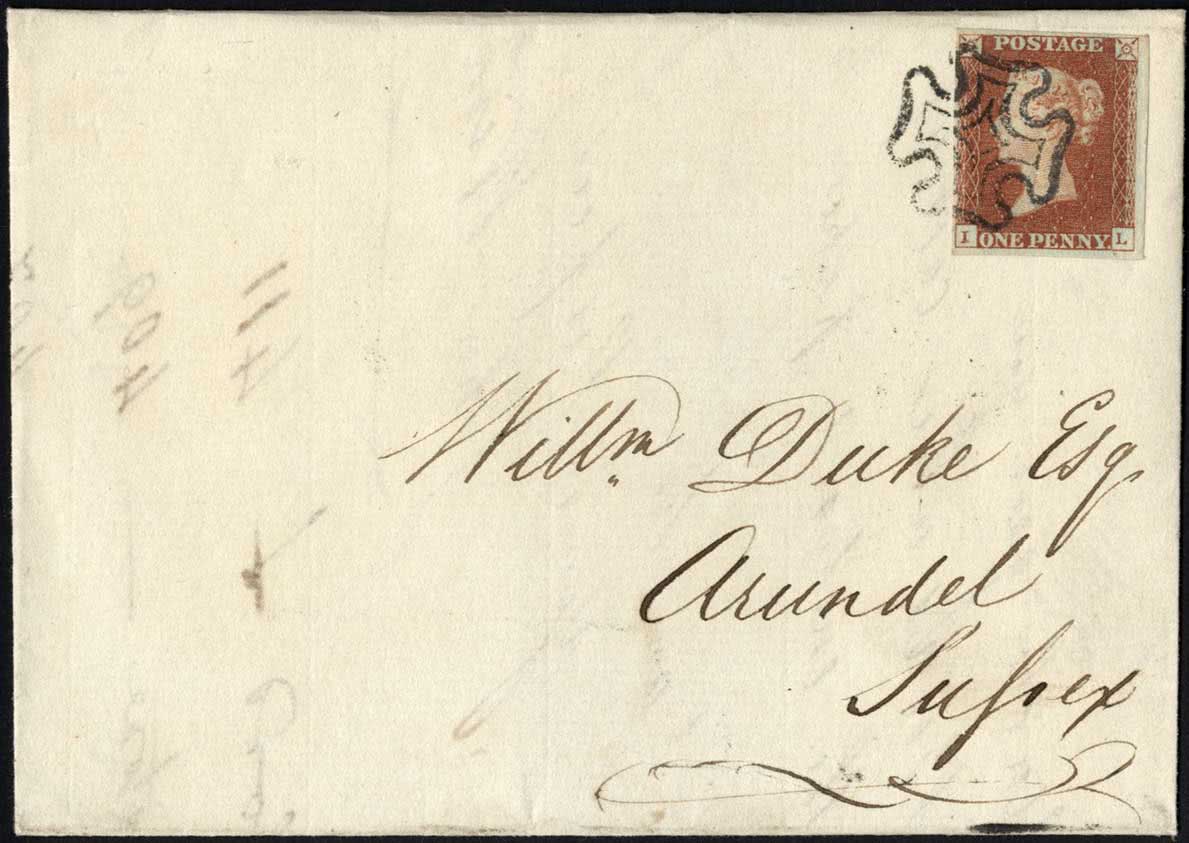 POSTAGE
I ONE PENNY. L
Willm Duke Esq.
Arundel
Sufsex